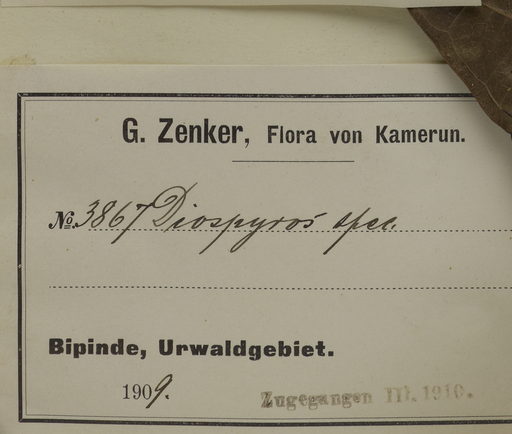 G. Zenker, Flora von Kamerun.
No. 3867 Diospyros spec.
Bipinde, Urwaldgebiet.
1909.
Zugegangen III. 1910.